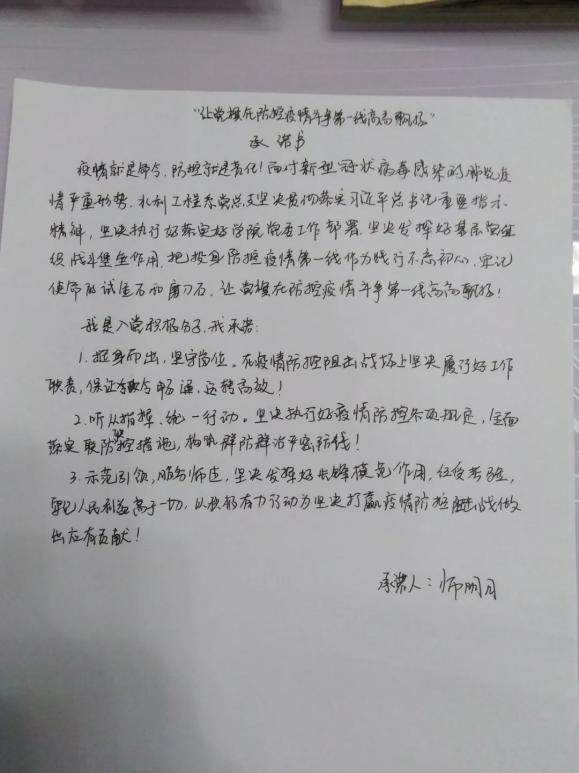 “让党旗在防控疫情斗争第一线高高飘扬”
承诺书
疫情就是命令，防控就是责任！面对新型冠状病毒感染的肺炎疫
情严重形势，水利工程系党总支坚决贯彻落实习近平总书记重要指示
精神，坚决执行好落实好学院党委工作部署，坚决发挥好基层党组
织战斗堡垒作用，把投身防控疫情第一线作为践行不忘初心、牢记
使命的试金石和磨刀石，让党旗在防控疫情斗争第一线高高飘扬！
我是入党积极分子，我承诺：
1.挺身而出，坚守岗位。在疫情防控阻击战场上坚决履行好工作
职责，保证政令畅通、运转高效！
2.听从指挥、统一行动。坚决执行好疫情防控各项规定，全面
落实联防联控措施，构筑群防群治严密防线！
3.示范引领，服务师生，坚决发挥好先锋模范作用，经受考验，
牢记人民利益高于一切，以积极有力行动为坚决打赢疫情防控阻击战做
出应有贡献！
承诺人：师明月